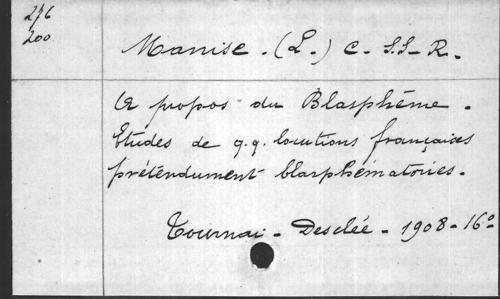 276
200
Manise. (L.) C. SS. R.
A propos du Blasphème.
Etudes de q.q. locutions françaises
prétendument blasphématoires.
Tournai - Desclée - 1908 - 16°